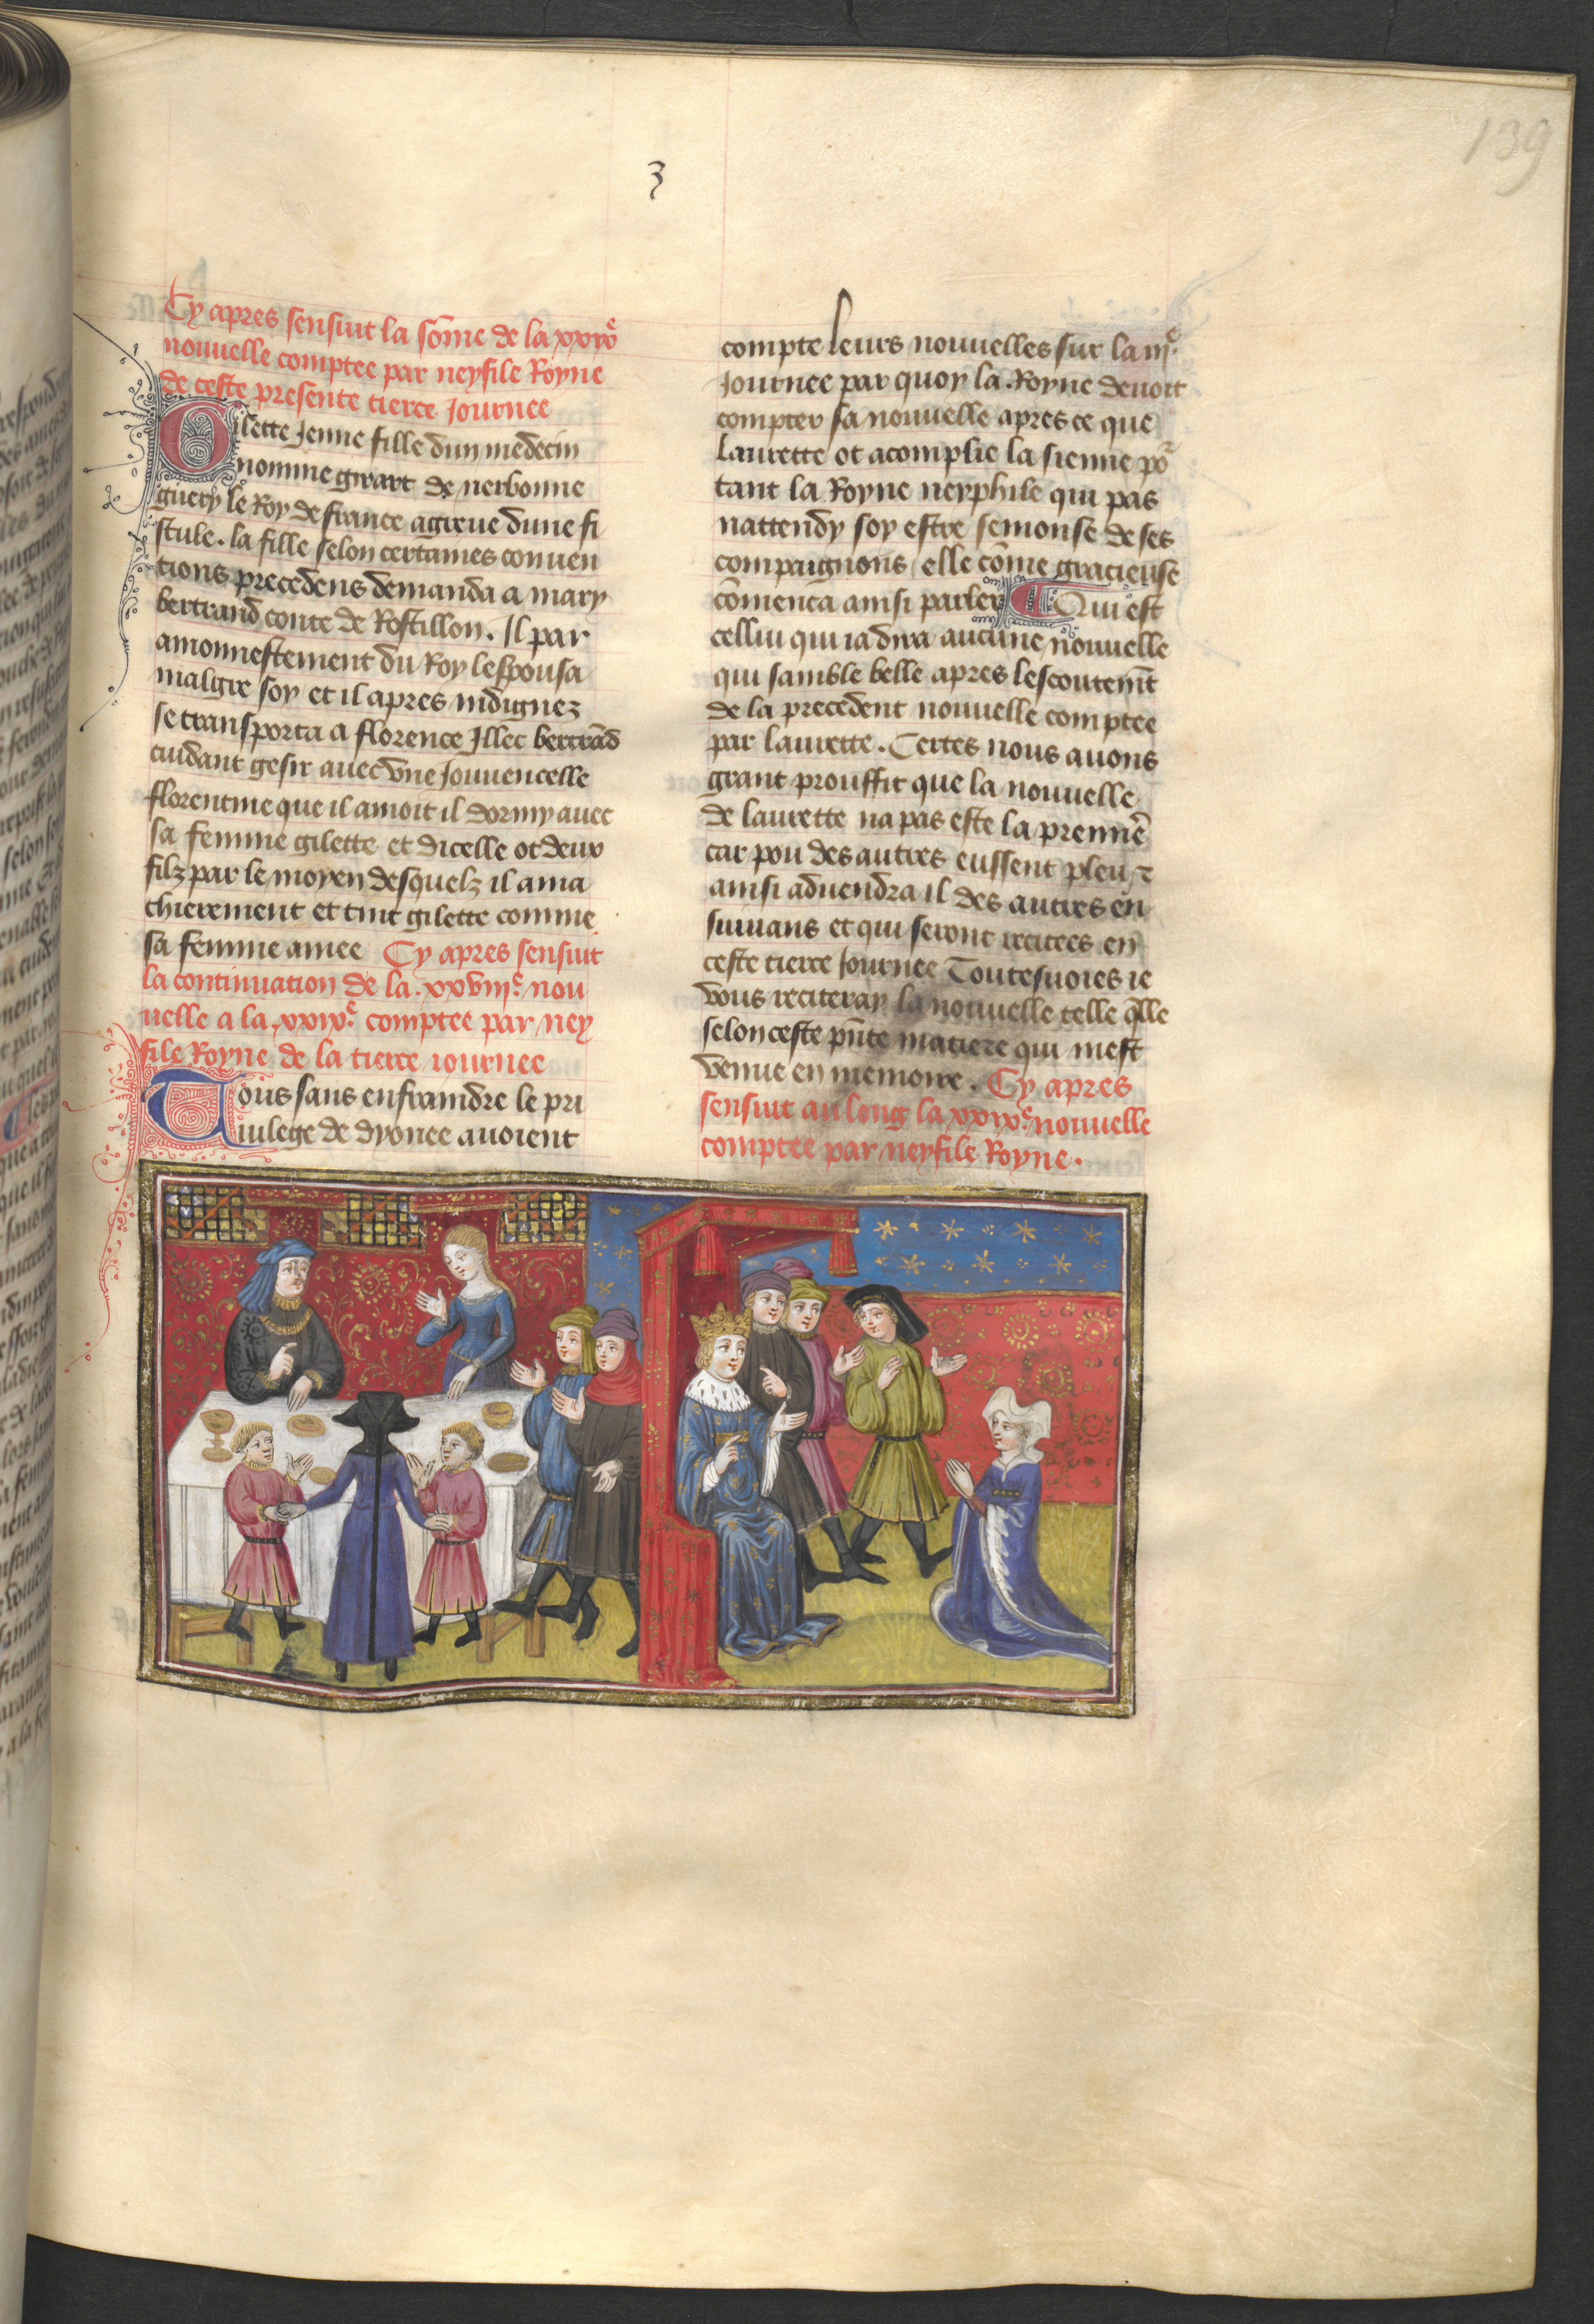 139
3
Cy apres sensuit la sõme de la xxixe
nouuelle comptee par neyfile Royne
de ceste presente tierce Journee
Gilette Jenne fille dun medecin
nomme girart de nerbonne
guery le Roy de france agreue dune fi
stule. la fille selon certaines conuen
tions precedens demanda a mary
bertrand conte de Rossillon. Il par
amonnestement du Roy lespousa
malgre soy et il apres indignez
se transporta a florence Illec bertrãd
cuidant gesir auec vne Jouuencelle
florentine que il amoit il dormy auec
sa femme gilette et dicelle ot deux
filz par le moyen desquelz il ama
chierement et tint gilette comme
sa femme amee Cy apres sensuit
la continuation de la .xxviije. nou
uelle a la .xxixe. comptee par ney
file Royne de la tierce iournee
Tous sans enfraindre le pri
iulege de dyonee auoient
compte leurs nouuelles sur la iije.
Journee par quoy la Royne deuoit
compter sa nouuelle apres ce que
laurette ot acomplie la sienne por
tant la Royne neyphile qui pas
nattendy soy estre semonse de ses
compaignons / elle cõme gracieuse
cõmenca ainsi parler Qui est
cellui qui ia dira aucune nouuelle
qui samble belle apres lescoutemt
de la precedent nouuelle comptee
par laurette. Certes nous auons
grant prouffit que la nouuelle
de laurette na pas este la premiere
car pou des autres eussent pleu ⁊
ainsi aduendra il des autres en
suiuans et qui seront recitees en
ceste tierce Journee Toutesuoies ie
vous reciteray la nouuelle telle qlle
selon ceste pñte matiere qui mest
venue en memoire. Cy apres
sensuit au long la xxixe. nouuelle
comptee par neyfile Royne.